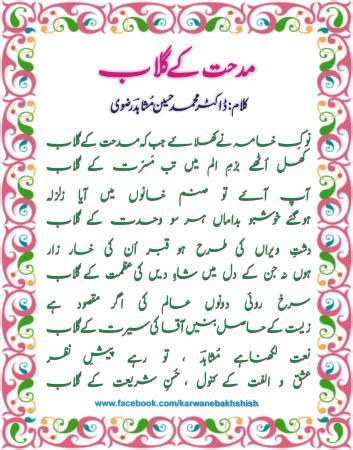 مدحت کے گلاب
کلام: ڈاکٹر محمد حسین مُشاہدؔ رضوی
نوکِ خامہ نے کھلائے جب کہ مدحت کے گلاب
کھل اُٹھے بزمِ الم میں تب مَسرّت کے گلاب
آپ آئے تو صنم خانوں میں آیا زلزلہ
ہوگئے خوشبو بداماں ہر سو وحدت کے گلاب
دشتِ ویراں کی طرح ہو قبر اُن کی خار زار
ہوں نہ جن کے دل میں شاہِ دیں کی عظمت کے گلاب
سرخ روئی دونوں عالم کی اگر مقصود ہے
زیست کے حاصل بنیں آقا کی سیرت کے گلاب
نعت لکھنا ہے مُشاہدؔ ، تو رہے پیشِ نظر
عشق و الفت کے کنول ، حُسنِ شریعت کے گلاب
www.facebook.com/karwanebakhshish